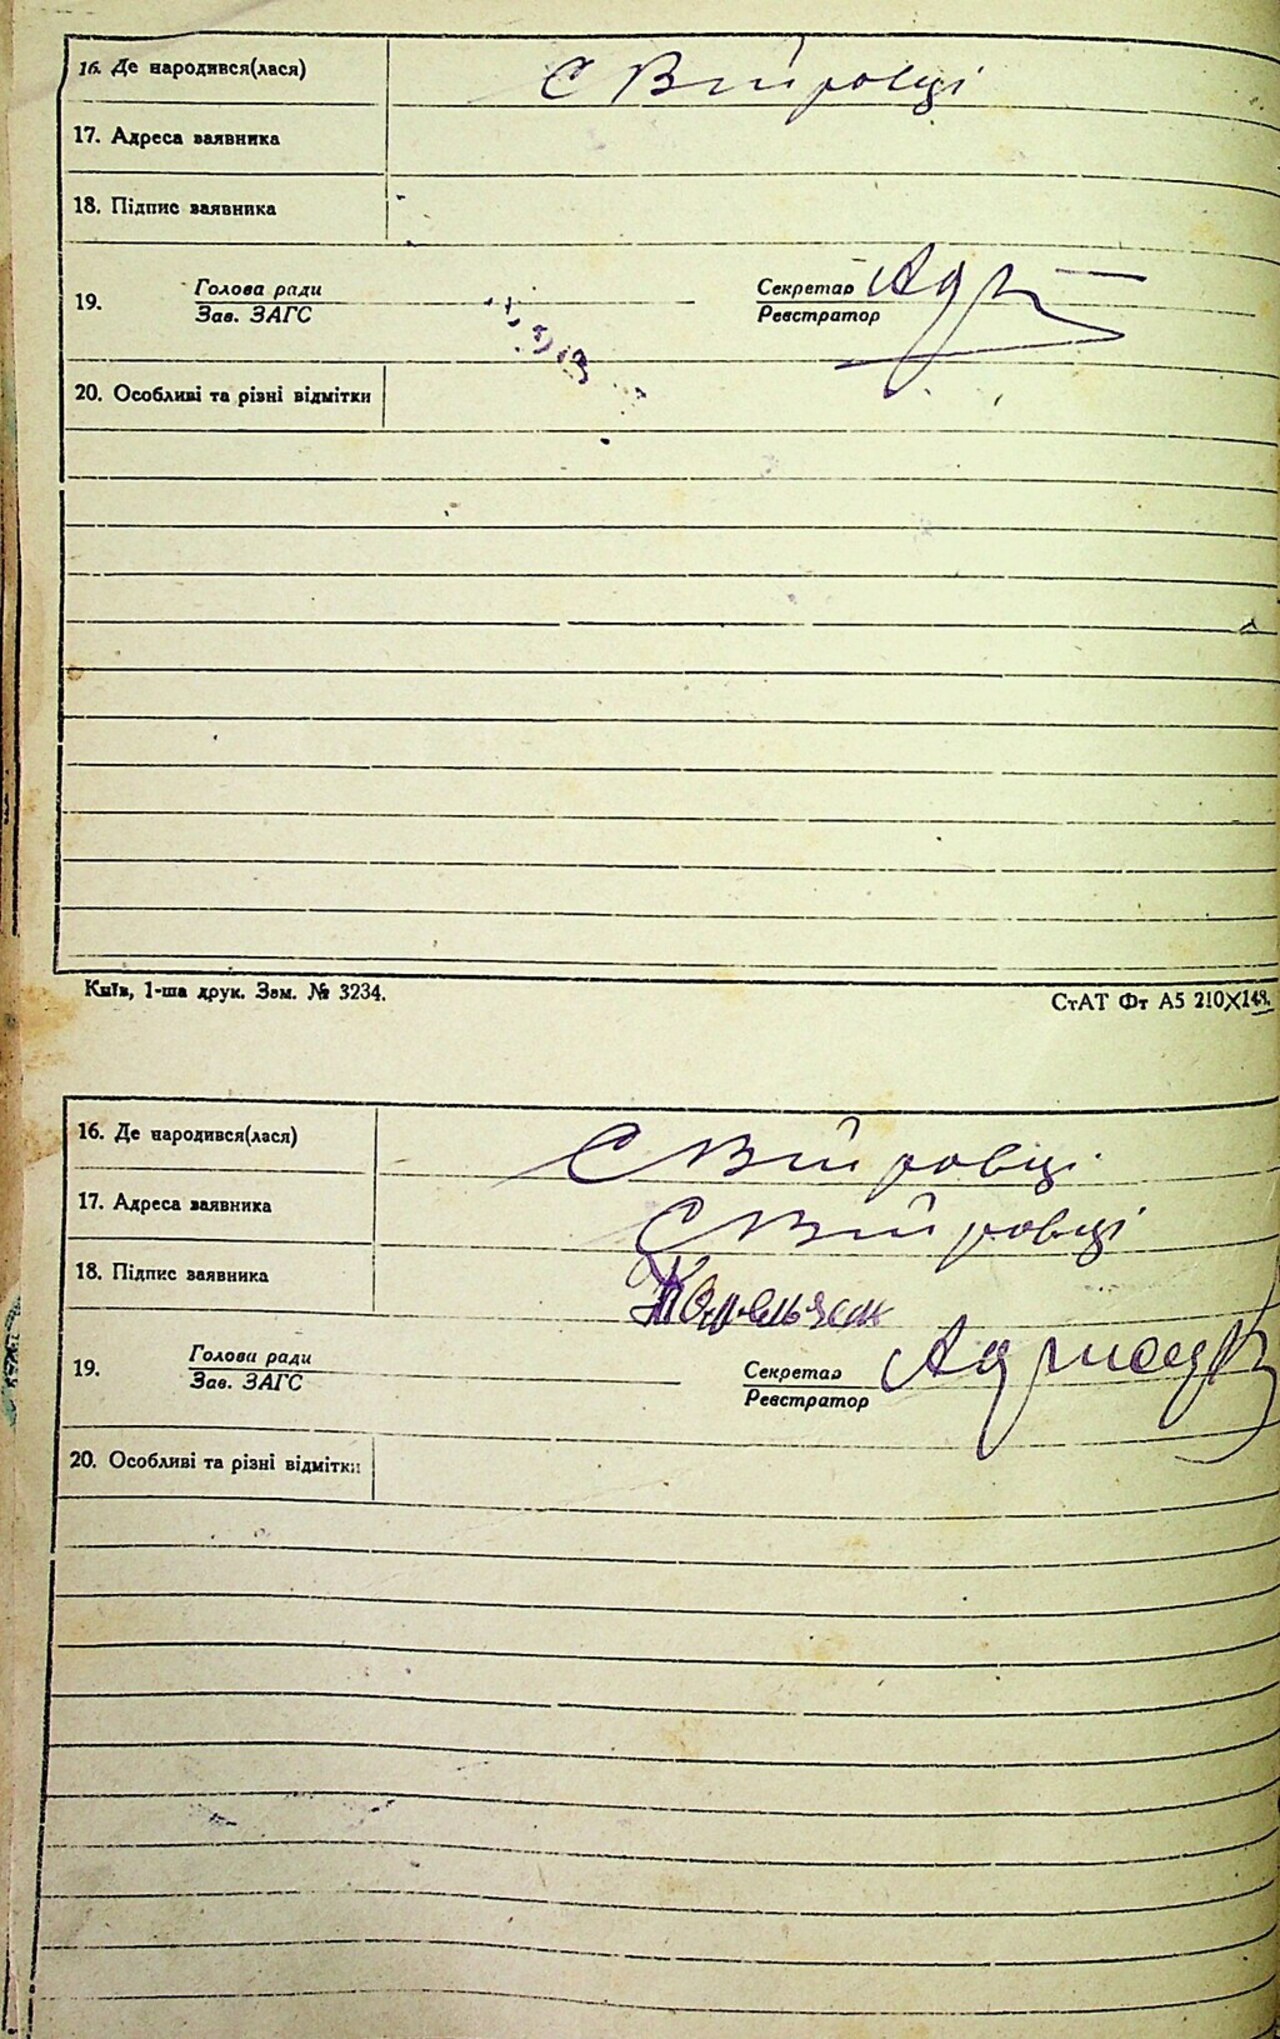 16. Де народився(лася) С Війтовці
17. Адреса заявника
18. Підпис заявника
19. Голова ради Секретар
Зав. ЗАГС Реєстратор
20. Особливі та різні відмітки
Київ, 1-ша друк. Зам. № 3234. СтАТ Фт А5 210X148.
16. Де народився(лася) С Війтовці
17. Адреса заявника С Війтовці
18. Підпис заявника
19. Голова ради Секретар
Зав. ЗАГС Реєстратор
20. Особливі та різні відмітки